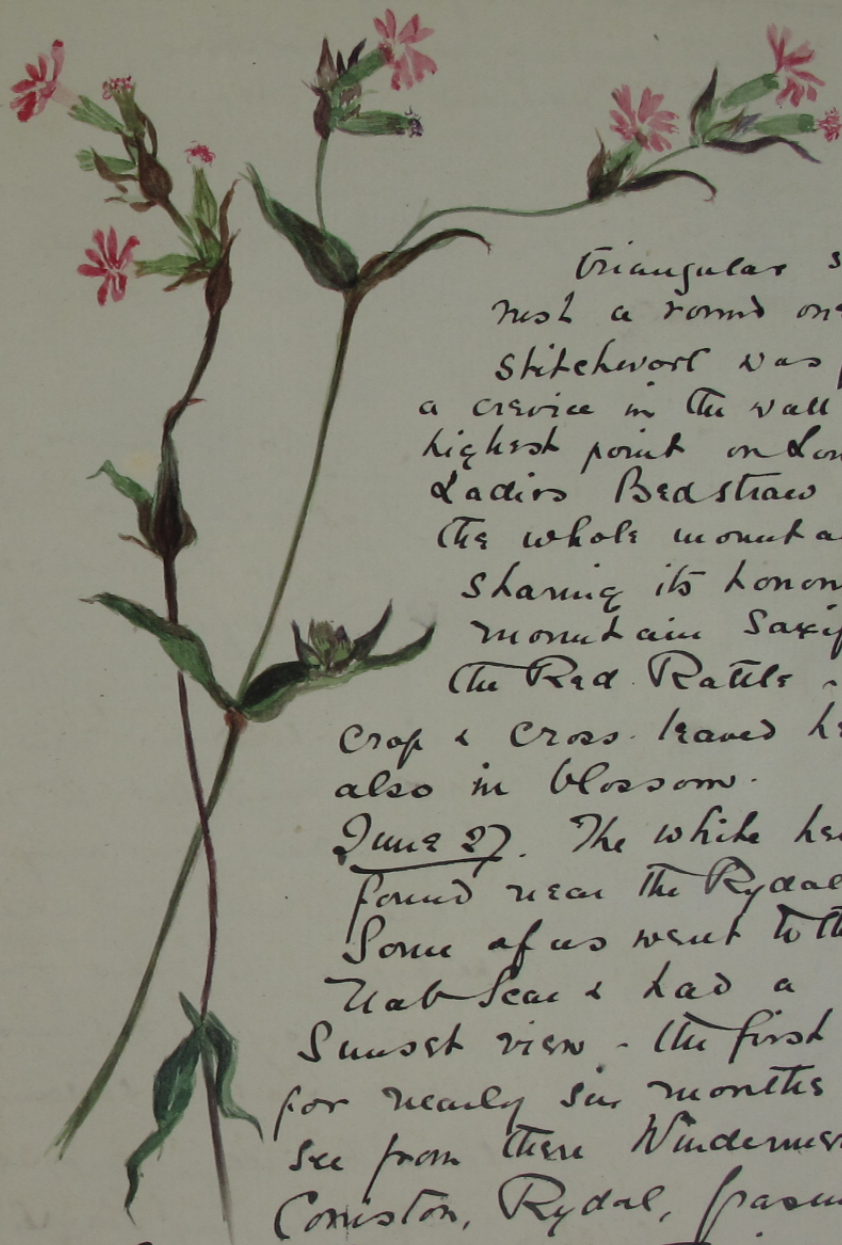 triangular s
rush a round one
Stitchwort was
a crevice in the wall
highest point on Lou
Ladies Bedstraw
the whole mounta
sharing its honou
mountain Saxif
the Red Rattle -
Crop & Cross-leaved he
also in blossom.
June 27. The white he
found near the Rydal
Some of us went to th
Nab Scar & had a
Sunset view - the first
for nearly six months
see from there Winderme
Coniston, Rydal, Grasm